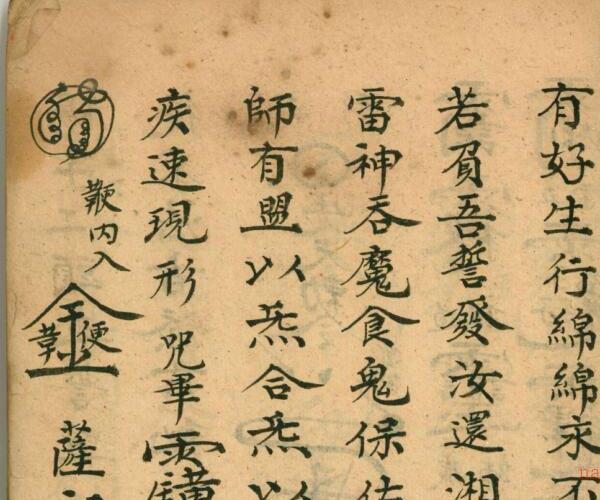 有好生行綿綿永不
若負吾誓發汝還湘
雷神吞魔食鬼保佑
師有盟以炁合炁以
疾速現形咒畢
鞭内入
薩